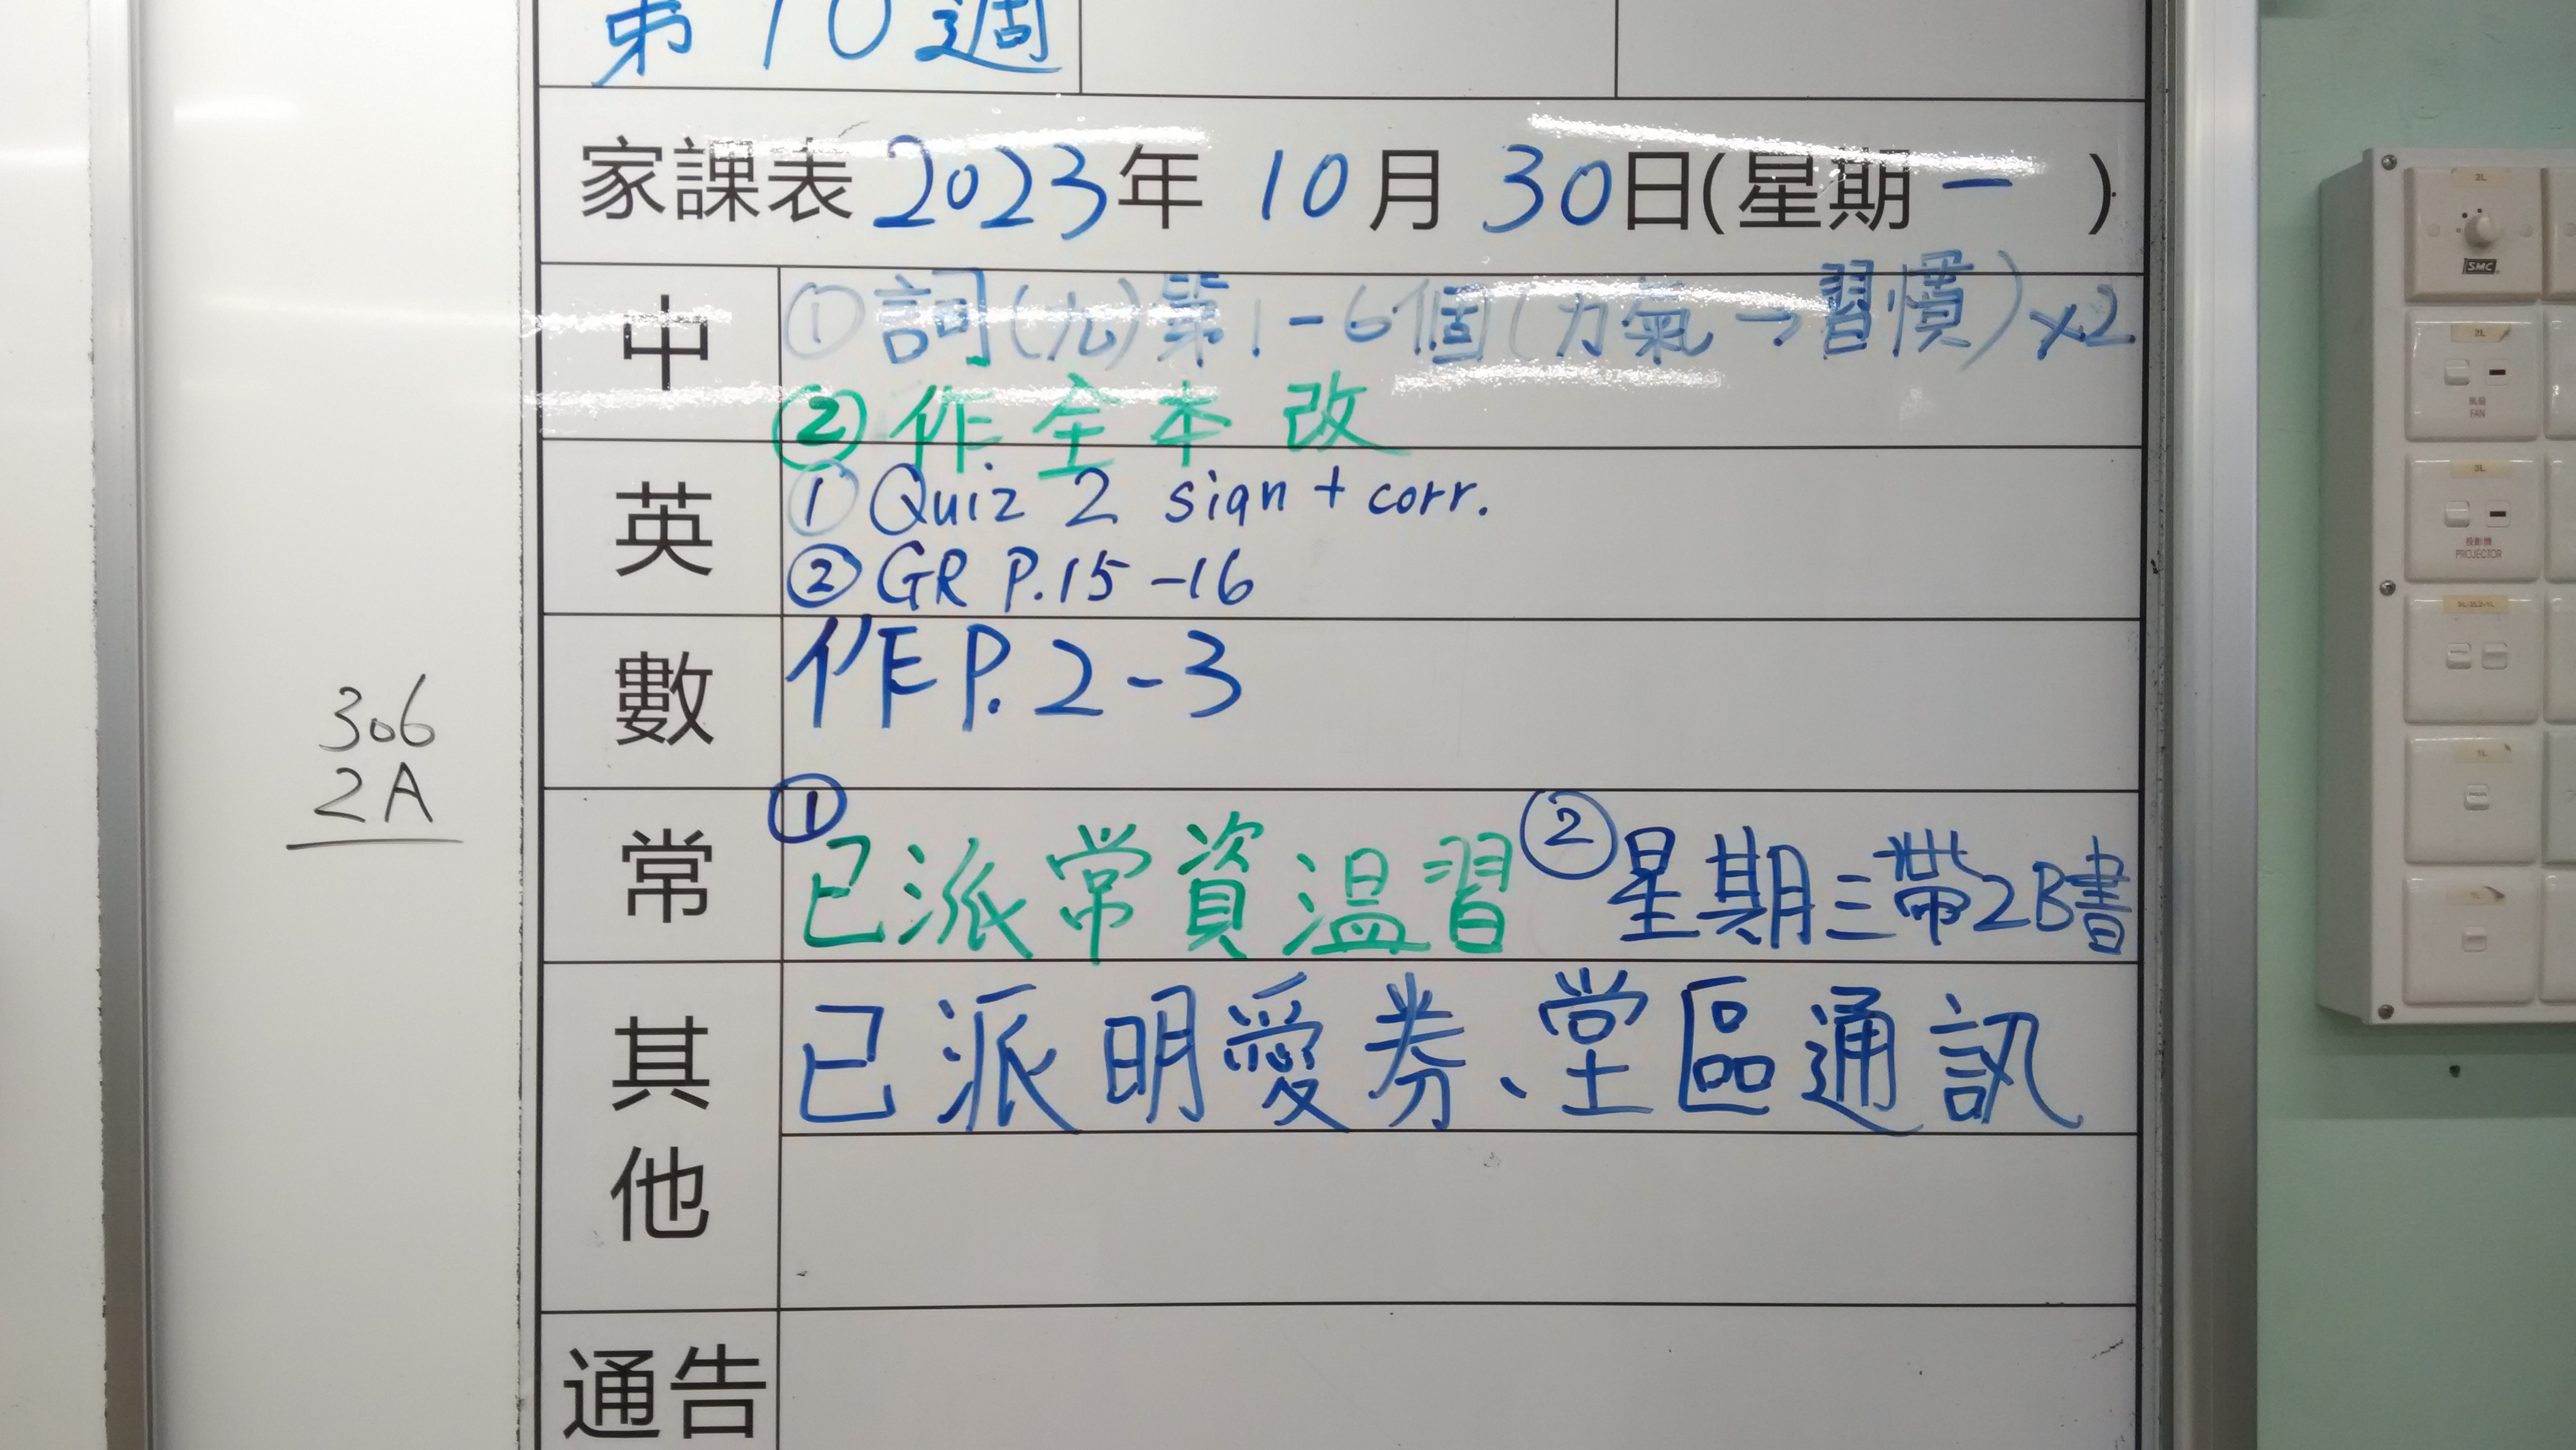 第10週
家課表 2023年 10月 30日(星期一 )
中
①詞(九)第1-6個(力氣→習慣)×2
②作全本改
英
①Quiz 2 sign + corr.
②GR P.15-16
數
作P.2-3
306
2A
常
①已派常資溫習 ②星期三帶2B書
其他
已派明愛券、堂區通訊
通告
2L
SMC
2L
風扇
FAN
2L
投影機
PROJECTOR
1L
1L